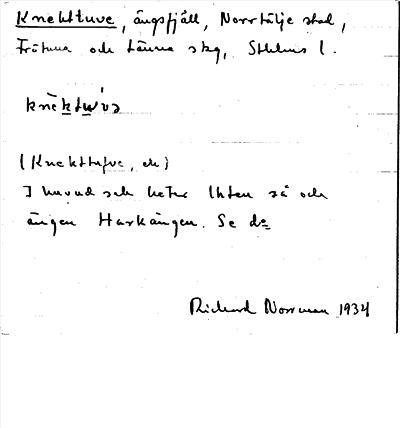 Knekttuve, ängsfjäll, Norrtälje stad,
Frötuna och Länna skg, Sthlms l.
knèktu̇́vȧ
(Knekttufve, ek)
I huvud sak heter lhten så och
ängen Harkängen. Se do
Richard Norrman 1934